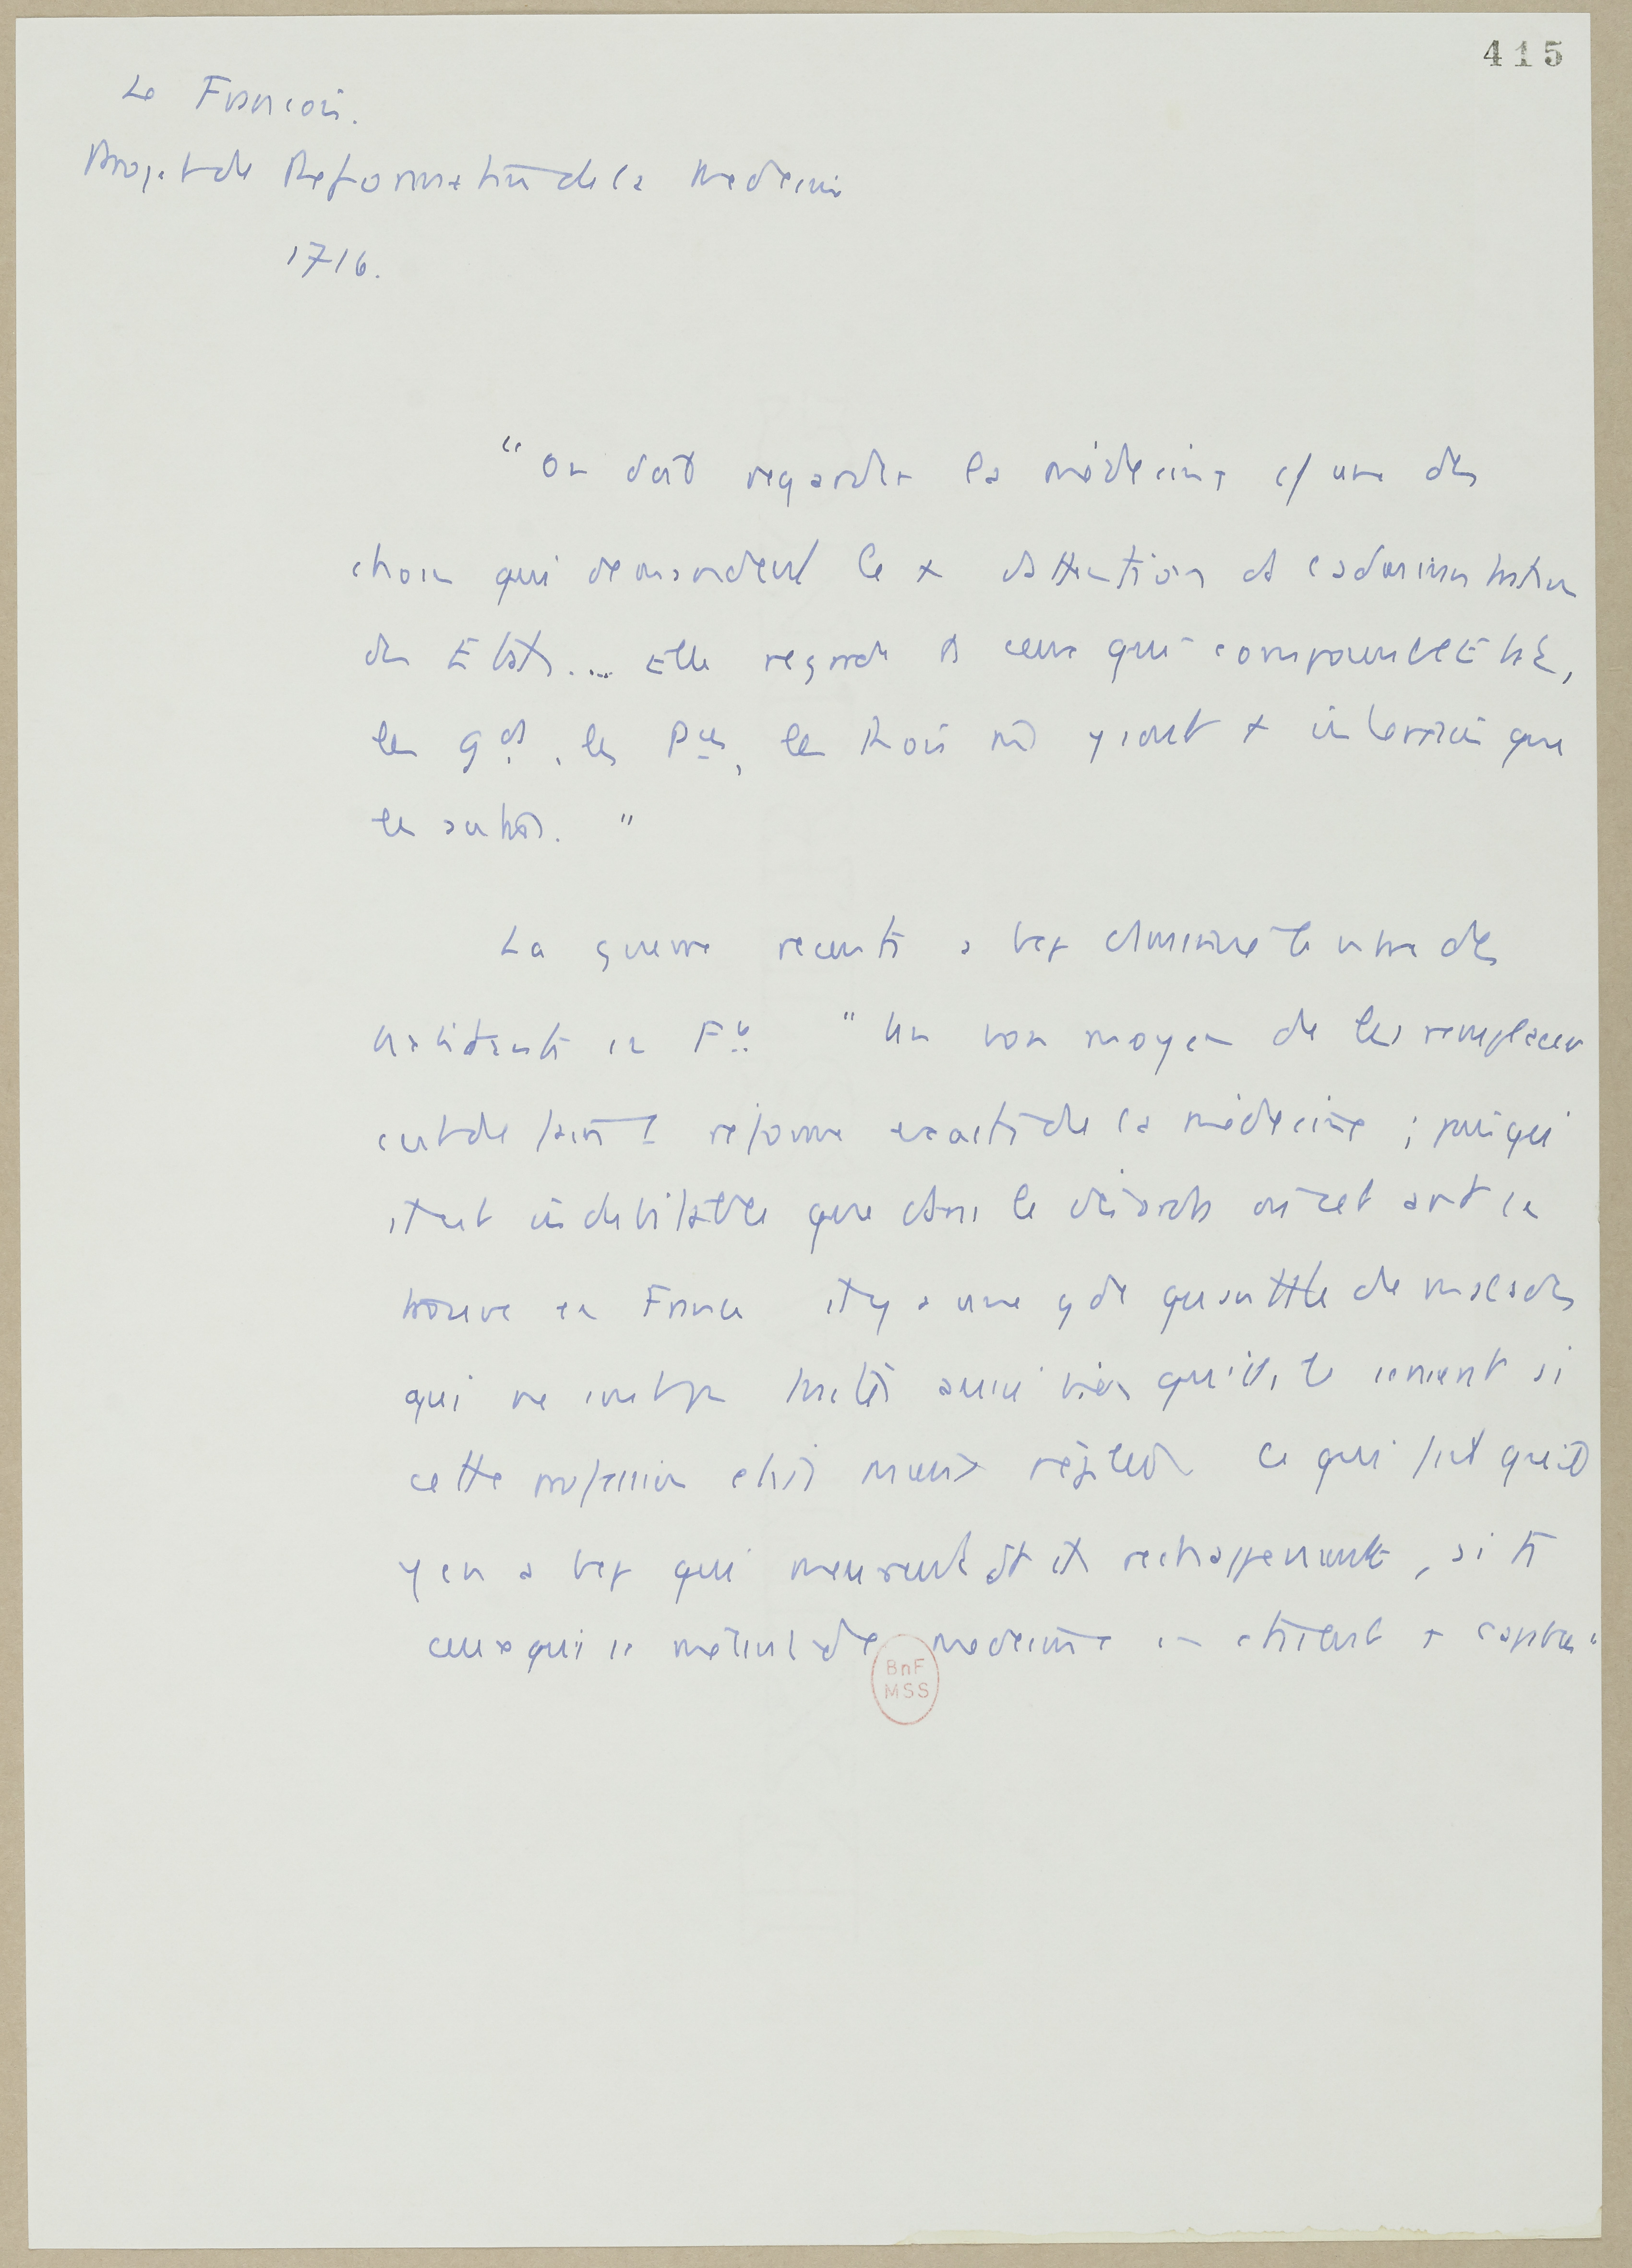 415
Le Francois.
Projet de Reformation de la Medecine
1716.
"On doit regarder la médecine c/ une des
choses qui demandent le + d'attention ds l'administration
des Etats... Elle regarde ts ceux qui composent l'Etat,
les gds, les Pces, les Rois mê y sont + intéressés que
les autres."
La guerre recente a bcp diminué le nbre des
habitants en Fce "Un bon moyen de les remplacer
est de faire 1 réforme exacte de la médecine ; puisqu'
il est indubitable que dans le désordre où cet art se
trouve en France il y a une gde quantité de malades
qui ne sont pas traités aussi bien qu'ils le seraient si
cette profession était mieux réglée. Ce qui fait qu'il
y en a bcp qui meurent et réchapperaient, si ts
ceux qui se mêlent de médecine en étaient + capables"
BnF
MSS